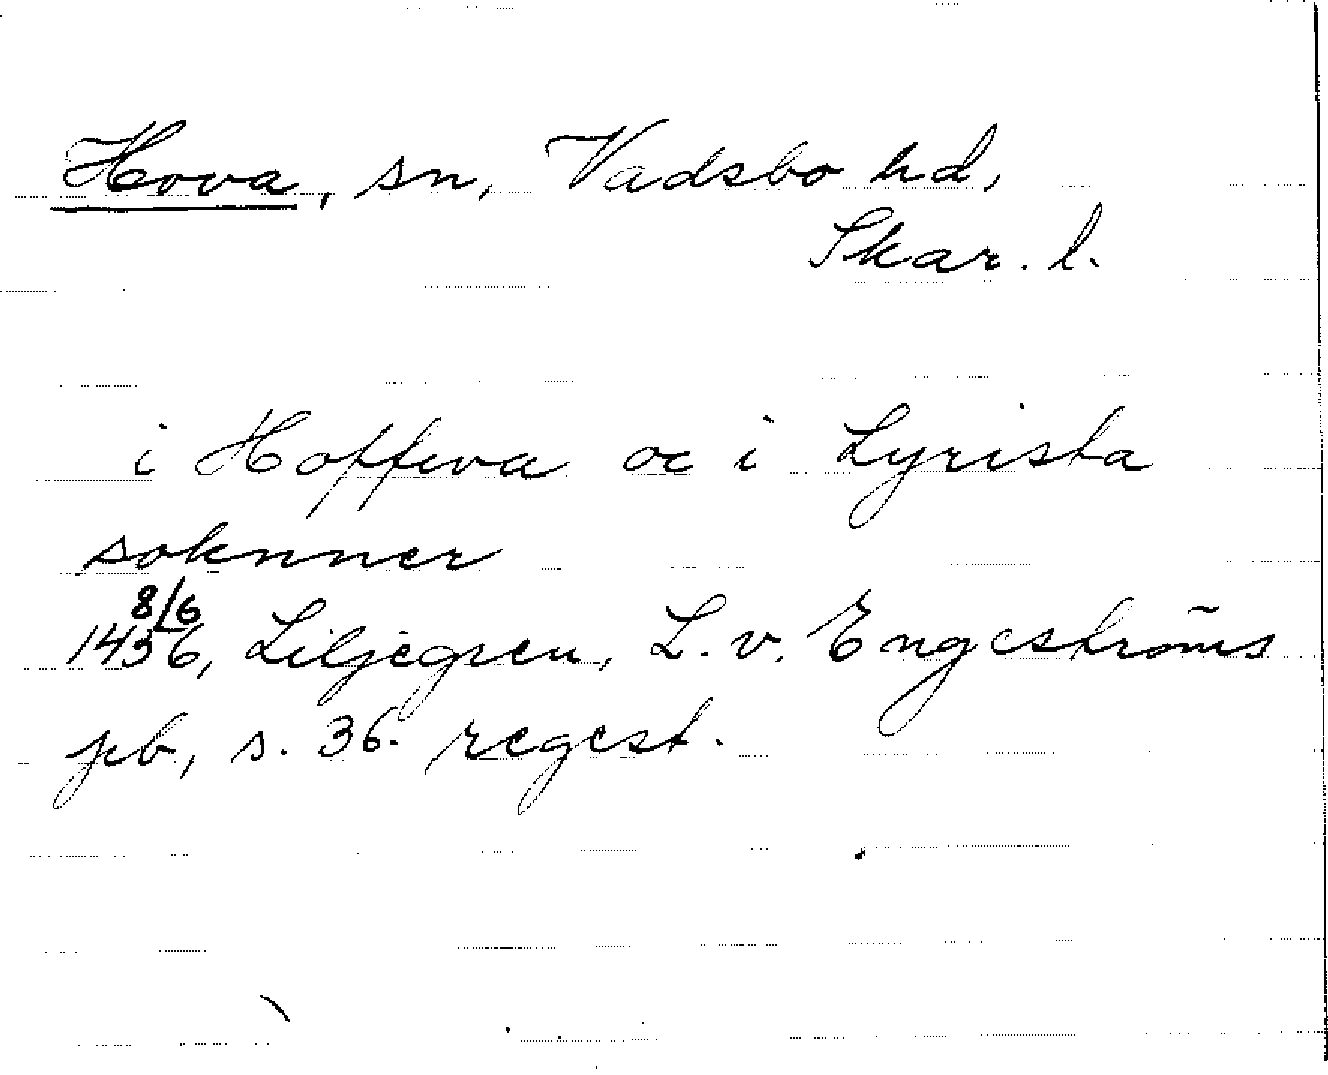 Hova, sn, Vadsbo hd,
Skar. l.
i Hoffwa oc i Lyrista
soknner
8/6
1436, Liljegren, L. v. Engeströms
pb, s. 36. regest.